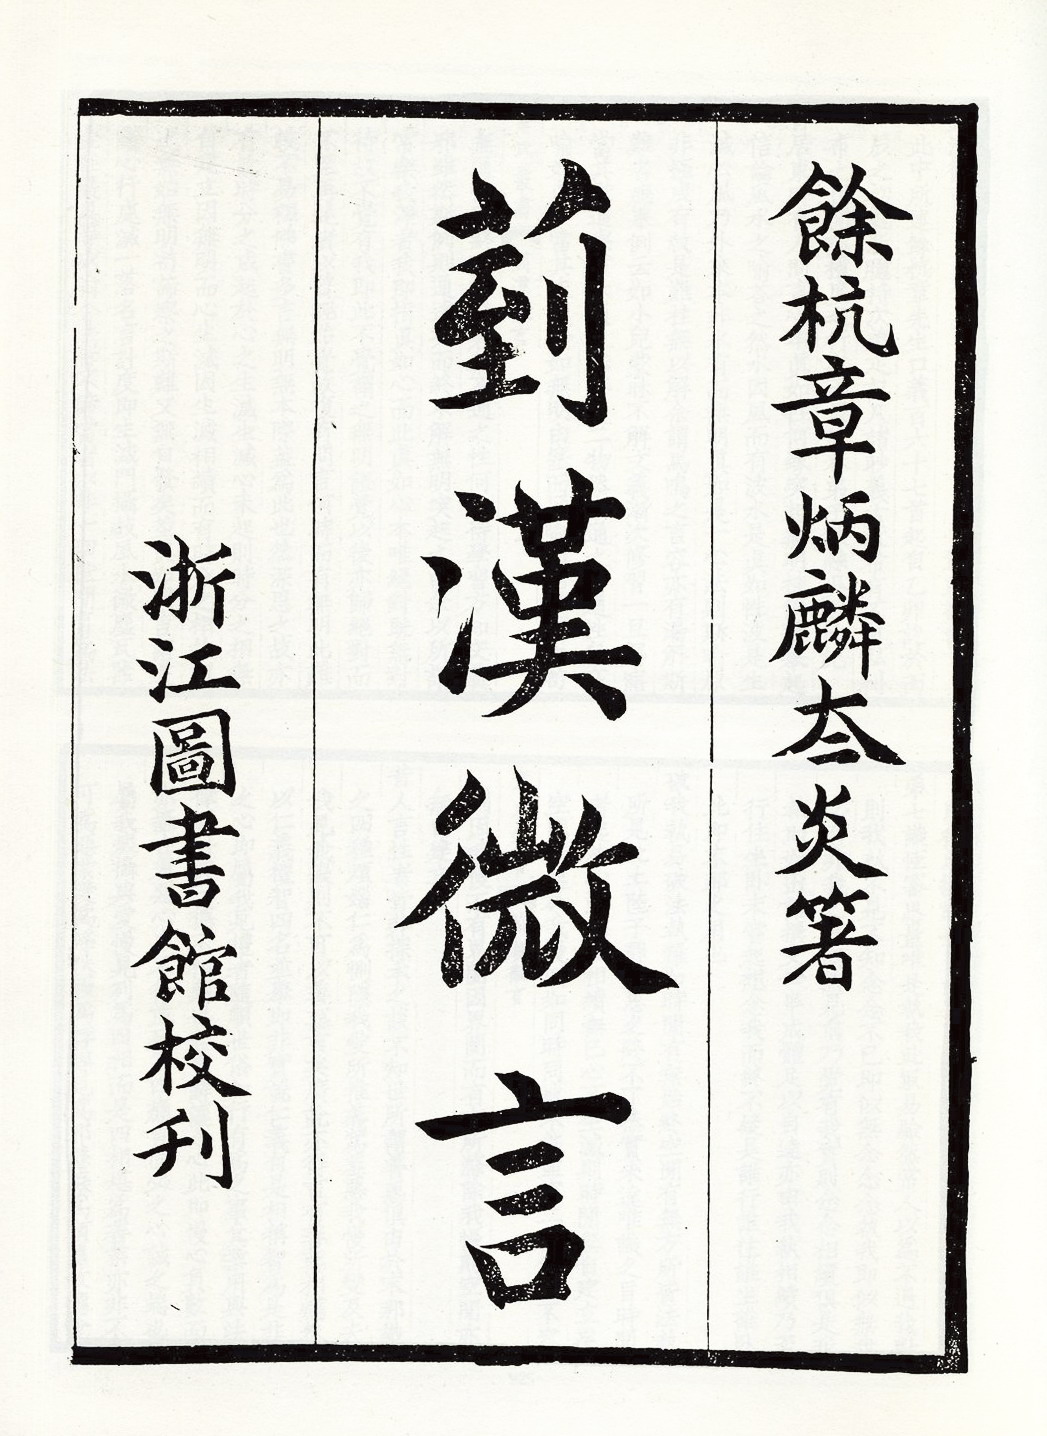 餘杭章炳麟夳炎箸
菿漢微言
浙江圖書館校刊